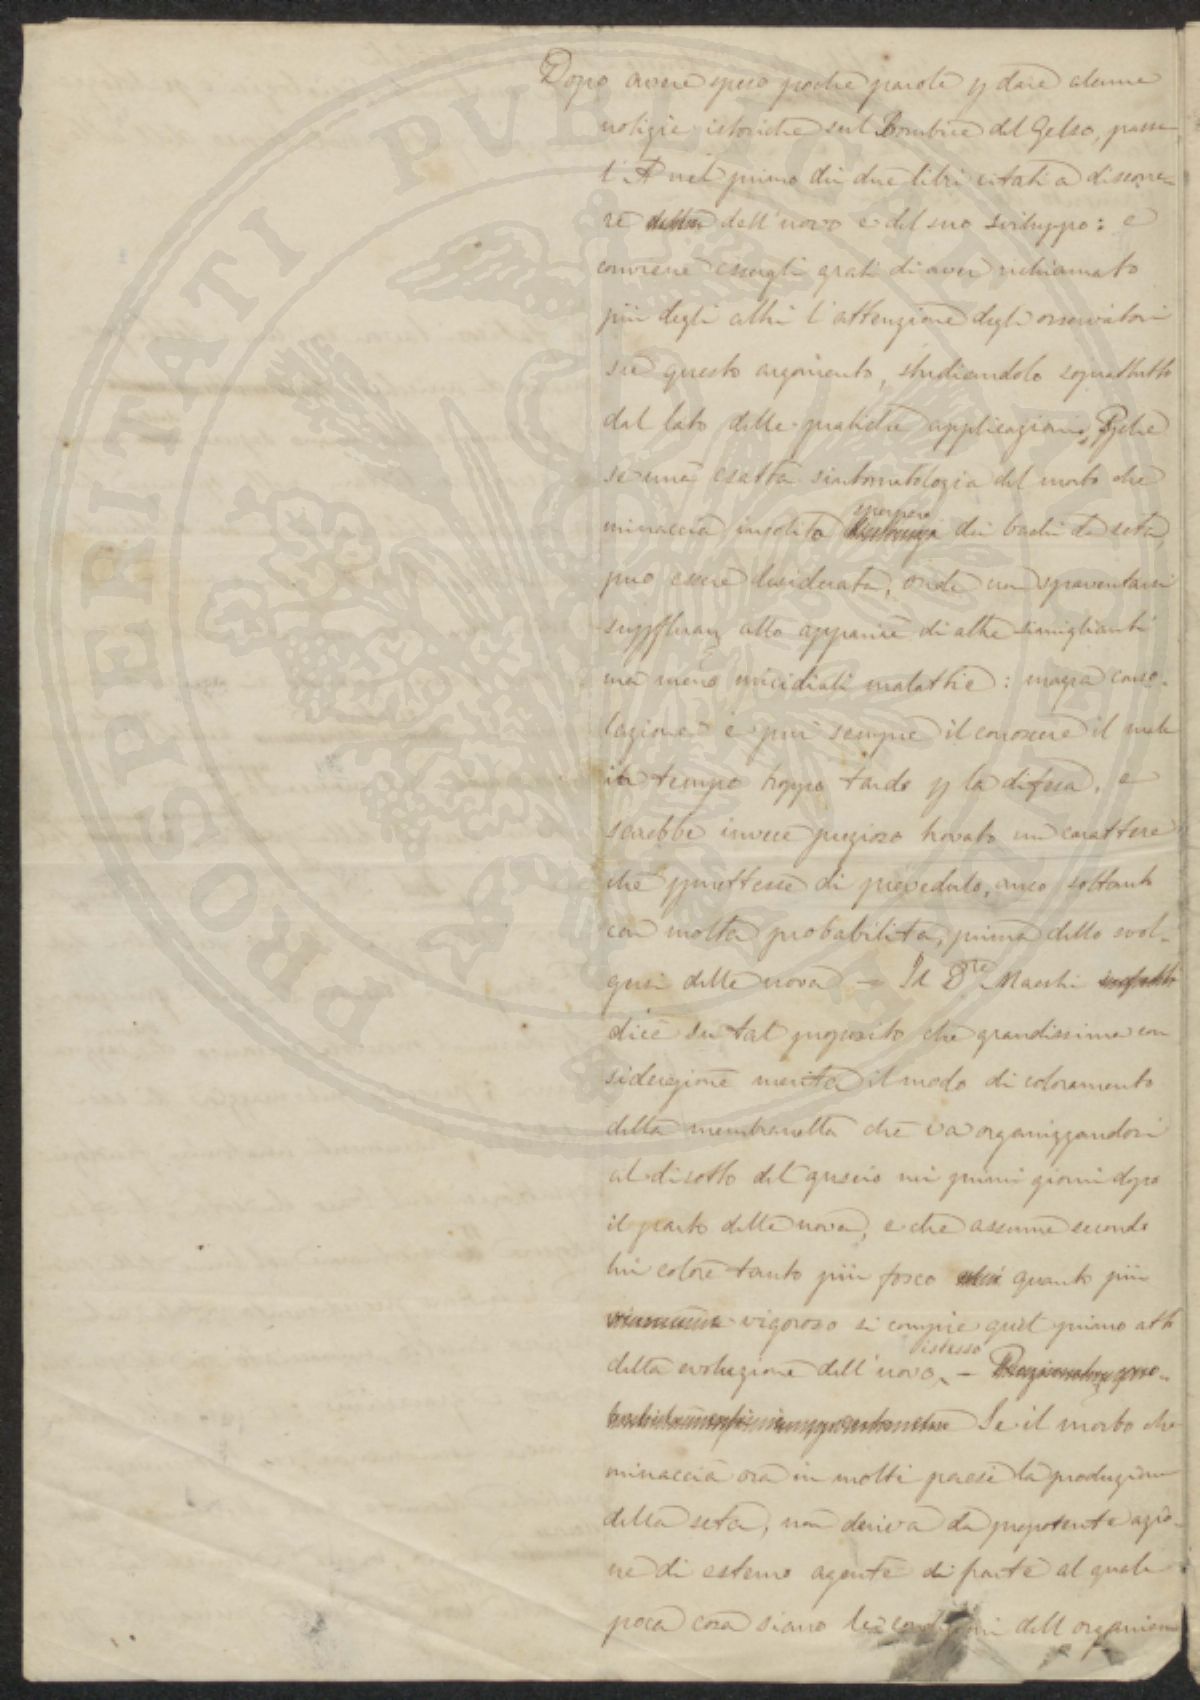 Dopo avere speso poche parole p dare alcune
notizie istoriche sul Bombice del Gelso, passa
l'A nel primo dei due libri citati a discorre-
re della dell'uovo e del suo sviluppo: e
conviene essergli grati di aver richiamato
più degli altri l'attenzione degli osservatori
su questo argomento, studiandolo soprattutto
dal lato delle pratiche applicazioni. Pche
se una esatta sintomatologia del morbo che
minaccia insolito sterminio dei bachi da seta,
può essere desiderata, onde non spaventarsi
allo apparire di altre simiglianti
ma meno micidiali malattie: magra conso-
lazione è pur sempre il conoscere il male
in tempo troppo tardo p la difesa, e
sarebbe invece prezioso trovato un carattere
che pmettesse di prevederlo, anco soltanto
con molta probabilità, prima dello svol-
gersi delle uova — Il Dre Maestri
dice su tal proposito che grandissima con
siderazione merita il modo di coloramento
della membranella che va organizzandosi
al disotto del guscio nei primi giorni dopo
il parto delle uova, e che assume secondo
lui colore tanto più fosco quanto più
vigoroso si compie quel primo atto
istesso
della evoluzione dell'uovo — 
Se il morbo che
minaccia ora in molti paesi la produzione
della seta, non deriva da prepotente azio-
ne di esterno agente di fronte al quale
poca cosa siano le condizioni dell'organismo
PROSPERITATI PVBLICAE